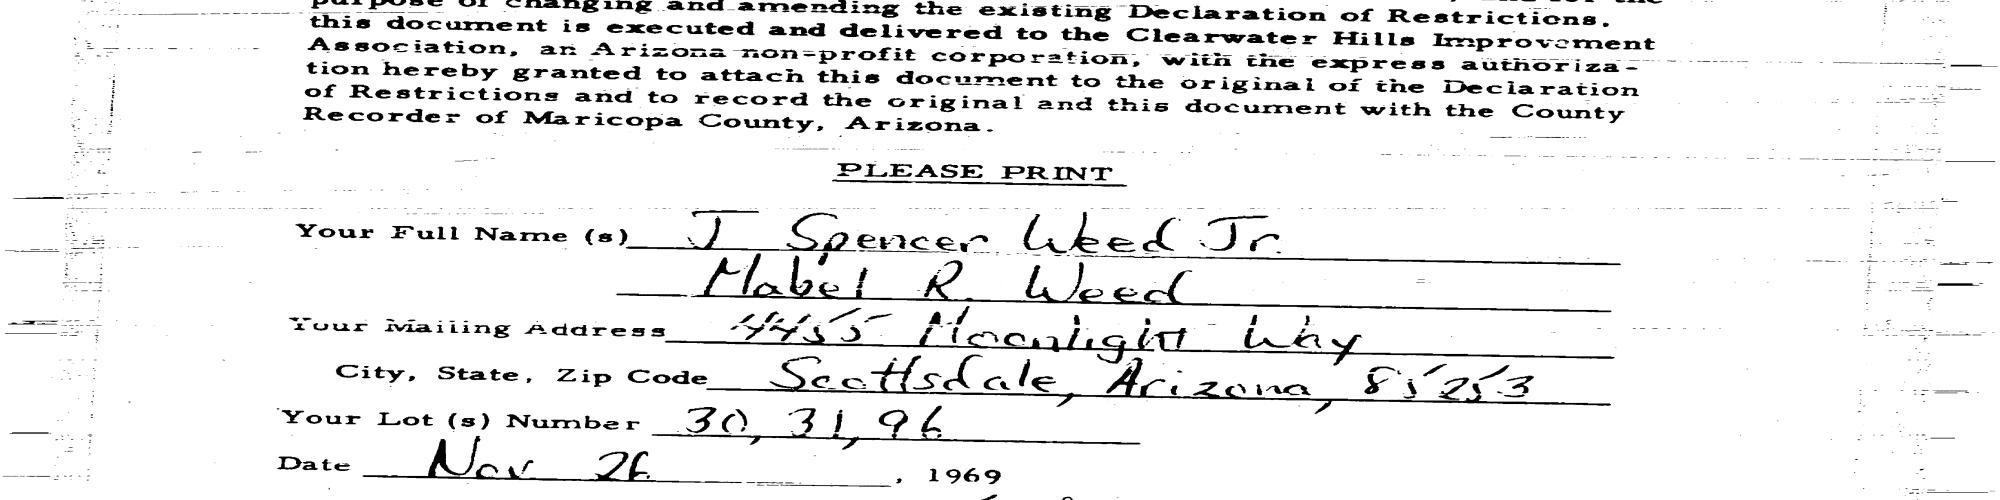 purpose of changing and amending the existing Declaration of Restrictions,
this document is executed and delivered to the Clearwater Hills Improvement
Association, an Arizona non-profit corporation, with the express authoriza-
tion hereby granted to attach this document to the original of the Declaration
of Restrictions and to record the original and this document with the County
Recorder of Maricopa County, Arizona.
PLEASE PRINT
Your Full Name (s) J Spencer Weed Jr.
Mabel R. Weed
Your Mailing Address 4455 Moonlight Way
City, State, Zip Code Scottsdale, Arizona, 85253
Your Lot (s) Number 30, 31, 96
Date Nov 26, 1969